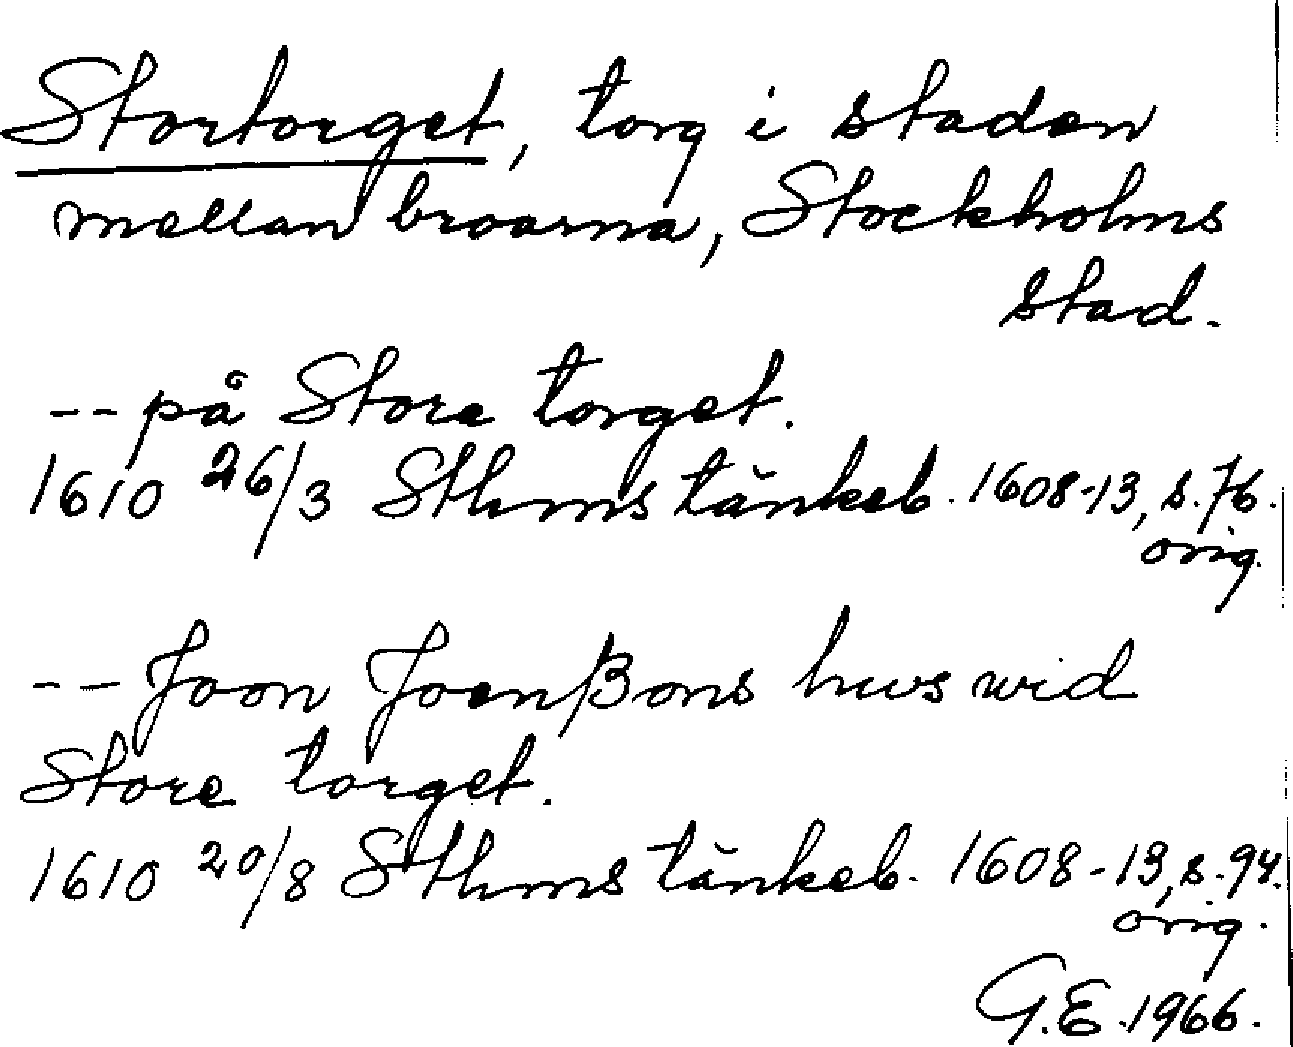 Stortorget, torg i staden
mellan broarna, Stockholms
stad.
-- på Store torget.
1610 26/3 Sthms tänkeb. 1608-13, s. 76.
orig.
-- Joon Joenßons hws wid
Store torget.
1610 20/8 Sthms tänkeb. 1608-13, s. 94.
orig.
G.E. 1966.